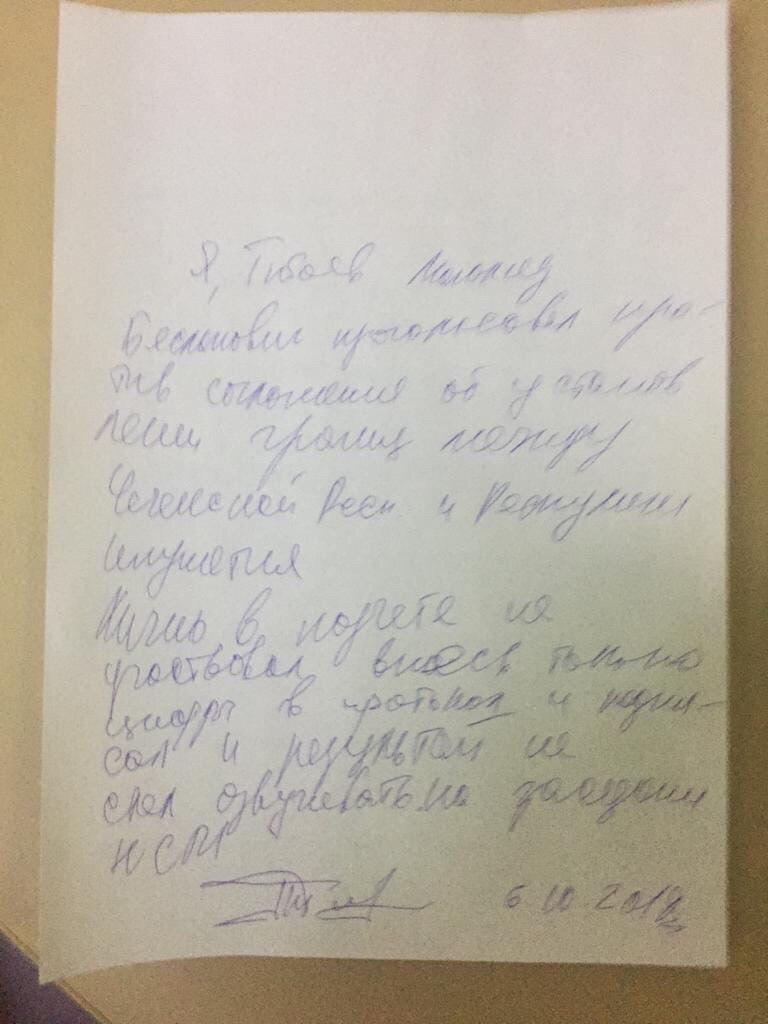 Я, Тибоев Магомед
Бесланович проголосовал про-
тив соглашения об установ
лении границ между
Чеченской Респ. и Республики
Ингушетия
Лично в подчете не
участвовал внеся только
цифры в протокол и подпи-
сал и результат не
стал озвучивать на заседании
НСРИ
6.10.2018г